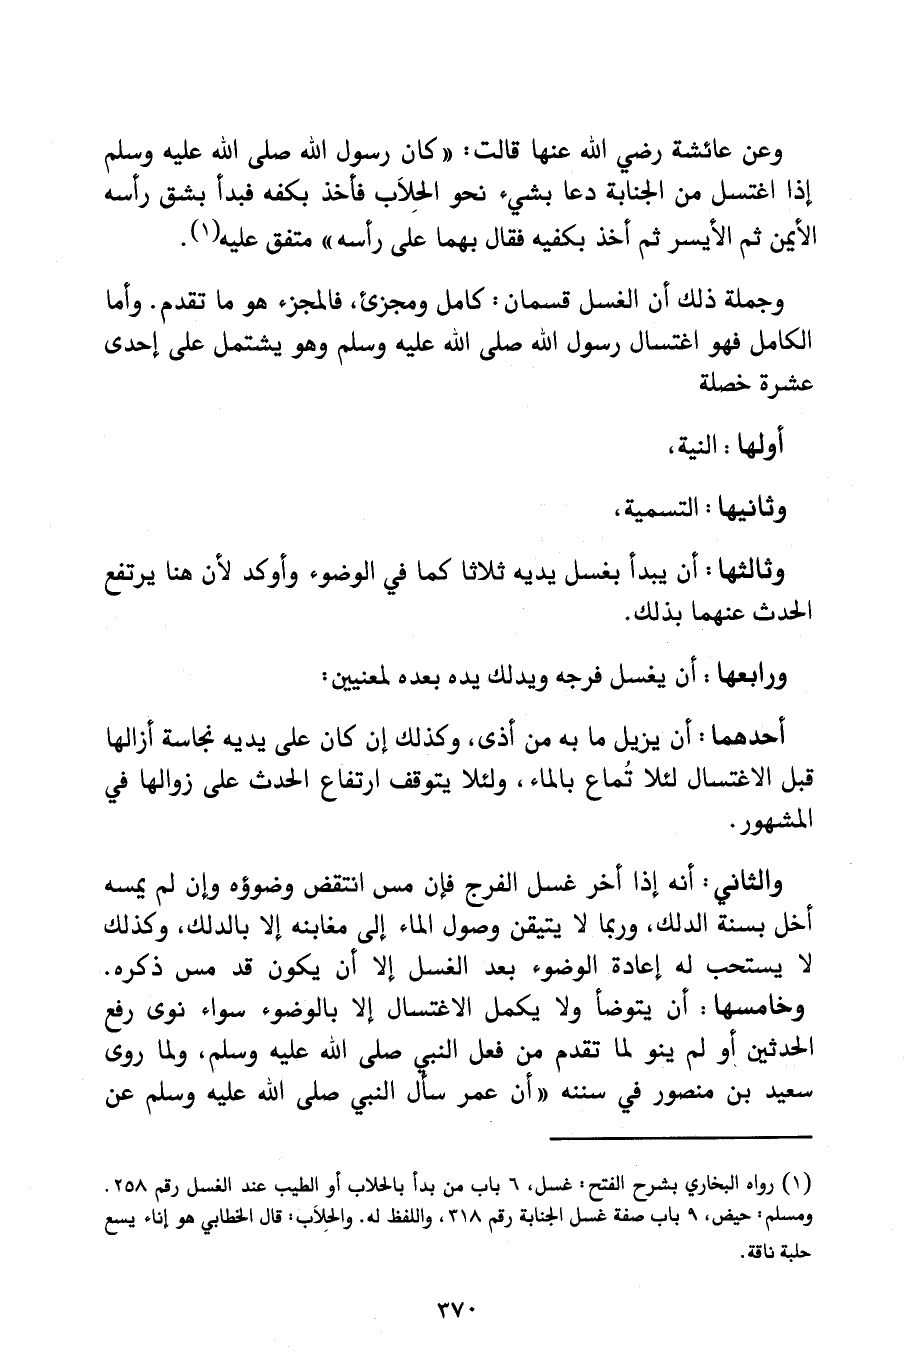 وعن عائشة رضي الله عنها قالت: «كان رسول الله صلى الله عليه وسلم
إذا اغتسل من الجنابة دعا بشيء نحو الحِلاَب فأخذ بكفه فبدأ بشق رأسه
الأيمن ثم الأيسر ثم أخذ بكفيه فقال بهما على رأسه» متفق عليه(١).
وجملة ذلك أن الغسل قسمان: كامل ومجزئ، فالمجزء هو ما تقدم. وأما
الكامل فهو اغتسال رسول الله صلى الله عليه وسلم وهو يشتمل على إحدى
عشرة خصلة
أولها: النية،
وثانيها: التسمية،
وثالثها: أن يبدأ بغسل يديه ثلاثا كما في الوضوء وأوكد لأن هنا يرتفع
الحدث عنهما بذلك.
ورابعها: أن يغسل فرجه ويدلك يده بعده لمعنيين:
أحدهما: أن يزيل ما به من أذى، وكذلك إن كان على يديه نجاسة أزالها
قبل الاغتسال لئلا تُماع بالماء، ولئلا يتوقف ارتفاع الحدث على زوالها في
المشهور.
والثاني: أنه إذا أخر غسل الفرج فإن مس انتقض وضوؤه وإن لم يمسه
أخل بسنة الدلك، وربما لا يتيقن وصول الماء إلى مغابنه إلا بالدلك، وكذلك
لا يستحب له إعادة الوضوء بعد الغسل إلا أن يكون قد مس ذكره.
وخامسها: أن يتوضأ ولا يكمل الاغتسال إلا بالوضوء سواء نوى رفع
الحدثين أو لم ينو لما تقدم من فعل النبي صلى الله عليه وسلم، ولما روى
سعيد بن منصور في سننه «أن عمر سأل النبي صلى الله عليه وسلم عن
(١) رواه البخاري بشرح الفتح: غسل، ٦ باب من بدأ بالحلاب أو الطيب عند الغسل رقم ٢٥٨.
ومسلم: حيض، ٩ باب صفة غسل الجنابة رقم ٣١٨، واللفظ له. والحِلاَب: قال الخطابي هو إناء يسع
حلبة ناقة.
٣٧٠